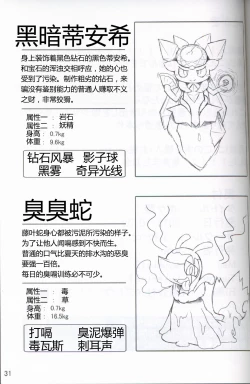 黑暗蒂安希
身上装饰着黑色钻石的黑色蒂安希。
和宝石的浑浊交相呼应，她的心也
受到了污染。制作粗劣的钻石，来
骗没有鉴别能力的普通人赚取不义
之财，非常狡猾。
属性一 ：岩石
属性二 ：妖精
身高：0.7kg
体重：9.6kg
钻石风暴 影子球
黑雾 奇异光线
臭臭蛇
藤叶蛇身心都被污泥所污染的样子。
为了让他人闻嗝感到不快而生。
普通的口气比夏天的排水沟的恶臭
要强一百倍。
每日的臭嗝训练必不可少。
属性一 ：毒
属性二 ：草
身高：0.7kg
体重：16.5kg
打嗝 臭泥爆弹
毒瓦斯 刺耳声
31